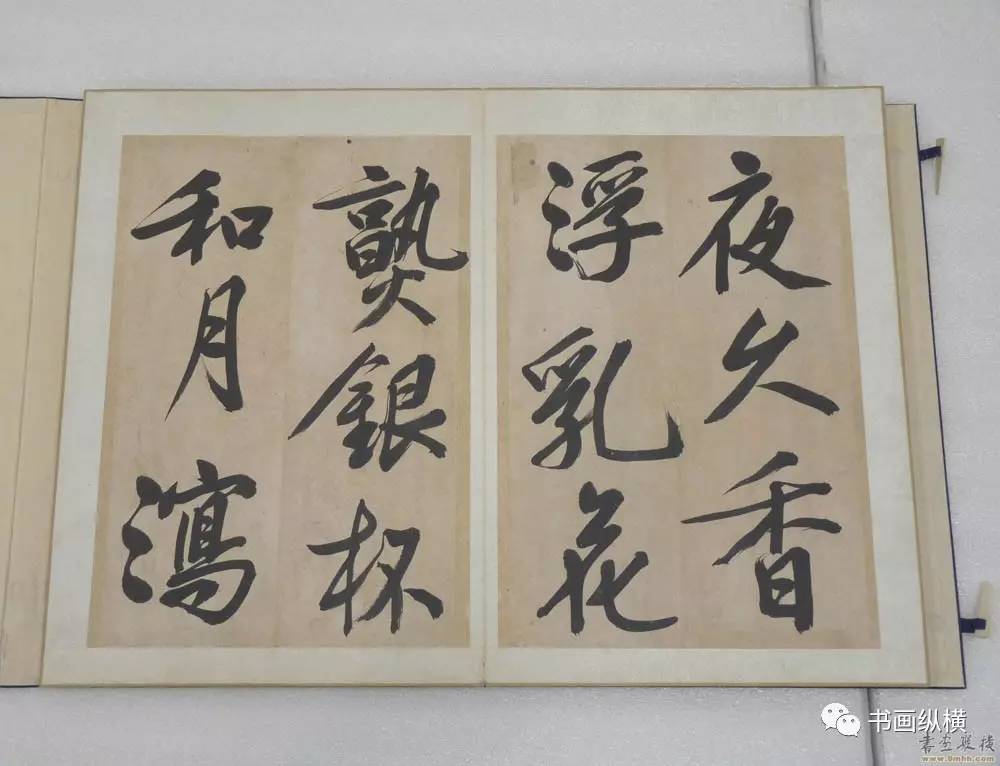 夜久香
浮乳花
爇銀杯
和月瀉
书画纵横
書画纵横
www.9mhh.com